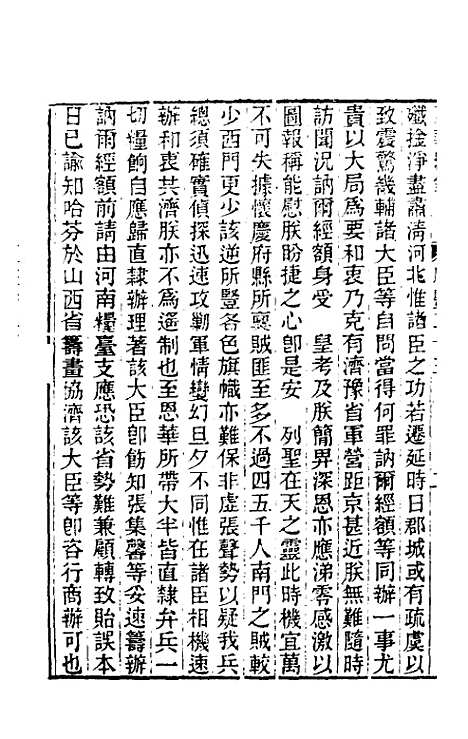 殲捡淨盡肅清河北惟諸臣之功若遷延時日郡城或有疏虞以
致震驚畿輔諸大臣等自問當得何罪訥爾經額等同辦一事尤
貴以大局爲要和衷乃克有濟豫省軍營距京甚近朕無難隨時
訪聞況訥爾經額身受　皇考及朕簡畀深恩亦應涕零感激以
圖報稱能慰朕盼捷之心卽是安　列聖在天之靈此時機宜萬
不可失據懷慶府縣所稟賊匪至多不過四五千人南門之賊較
少西門更少該逆所豎各色旗幟亦難保非虛張聲勢以疑我兵
總須確實偵探迅速攻勦軍情變幻旦夕不同惟在諸臣相機速
辦和衷共濟朕亦不爲遙制也至恩華所帶大半皆直隸弁兵一
切糧餉自應歸直隸辦理著該大臣卽飭知張集馨等妥速籌辦
訥爾經額前請由河南糧臺支應恐該省勢難兼顧轉致貽誤本
日已諭知哈芬於山西省籌畫協濟該大臣等卽咨行商辦可也